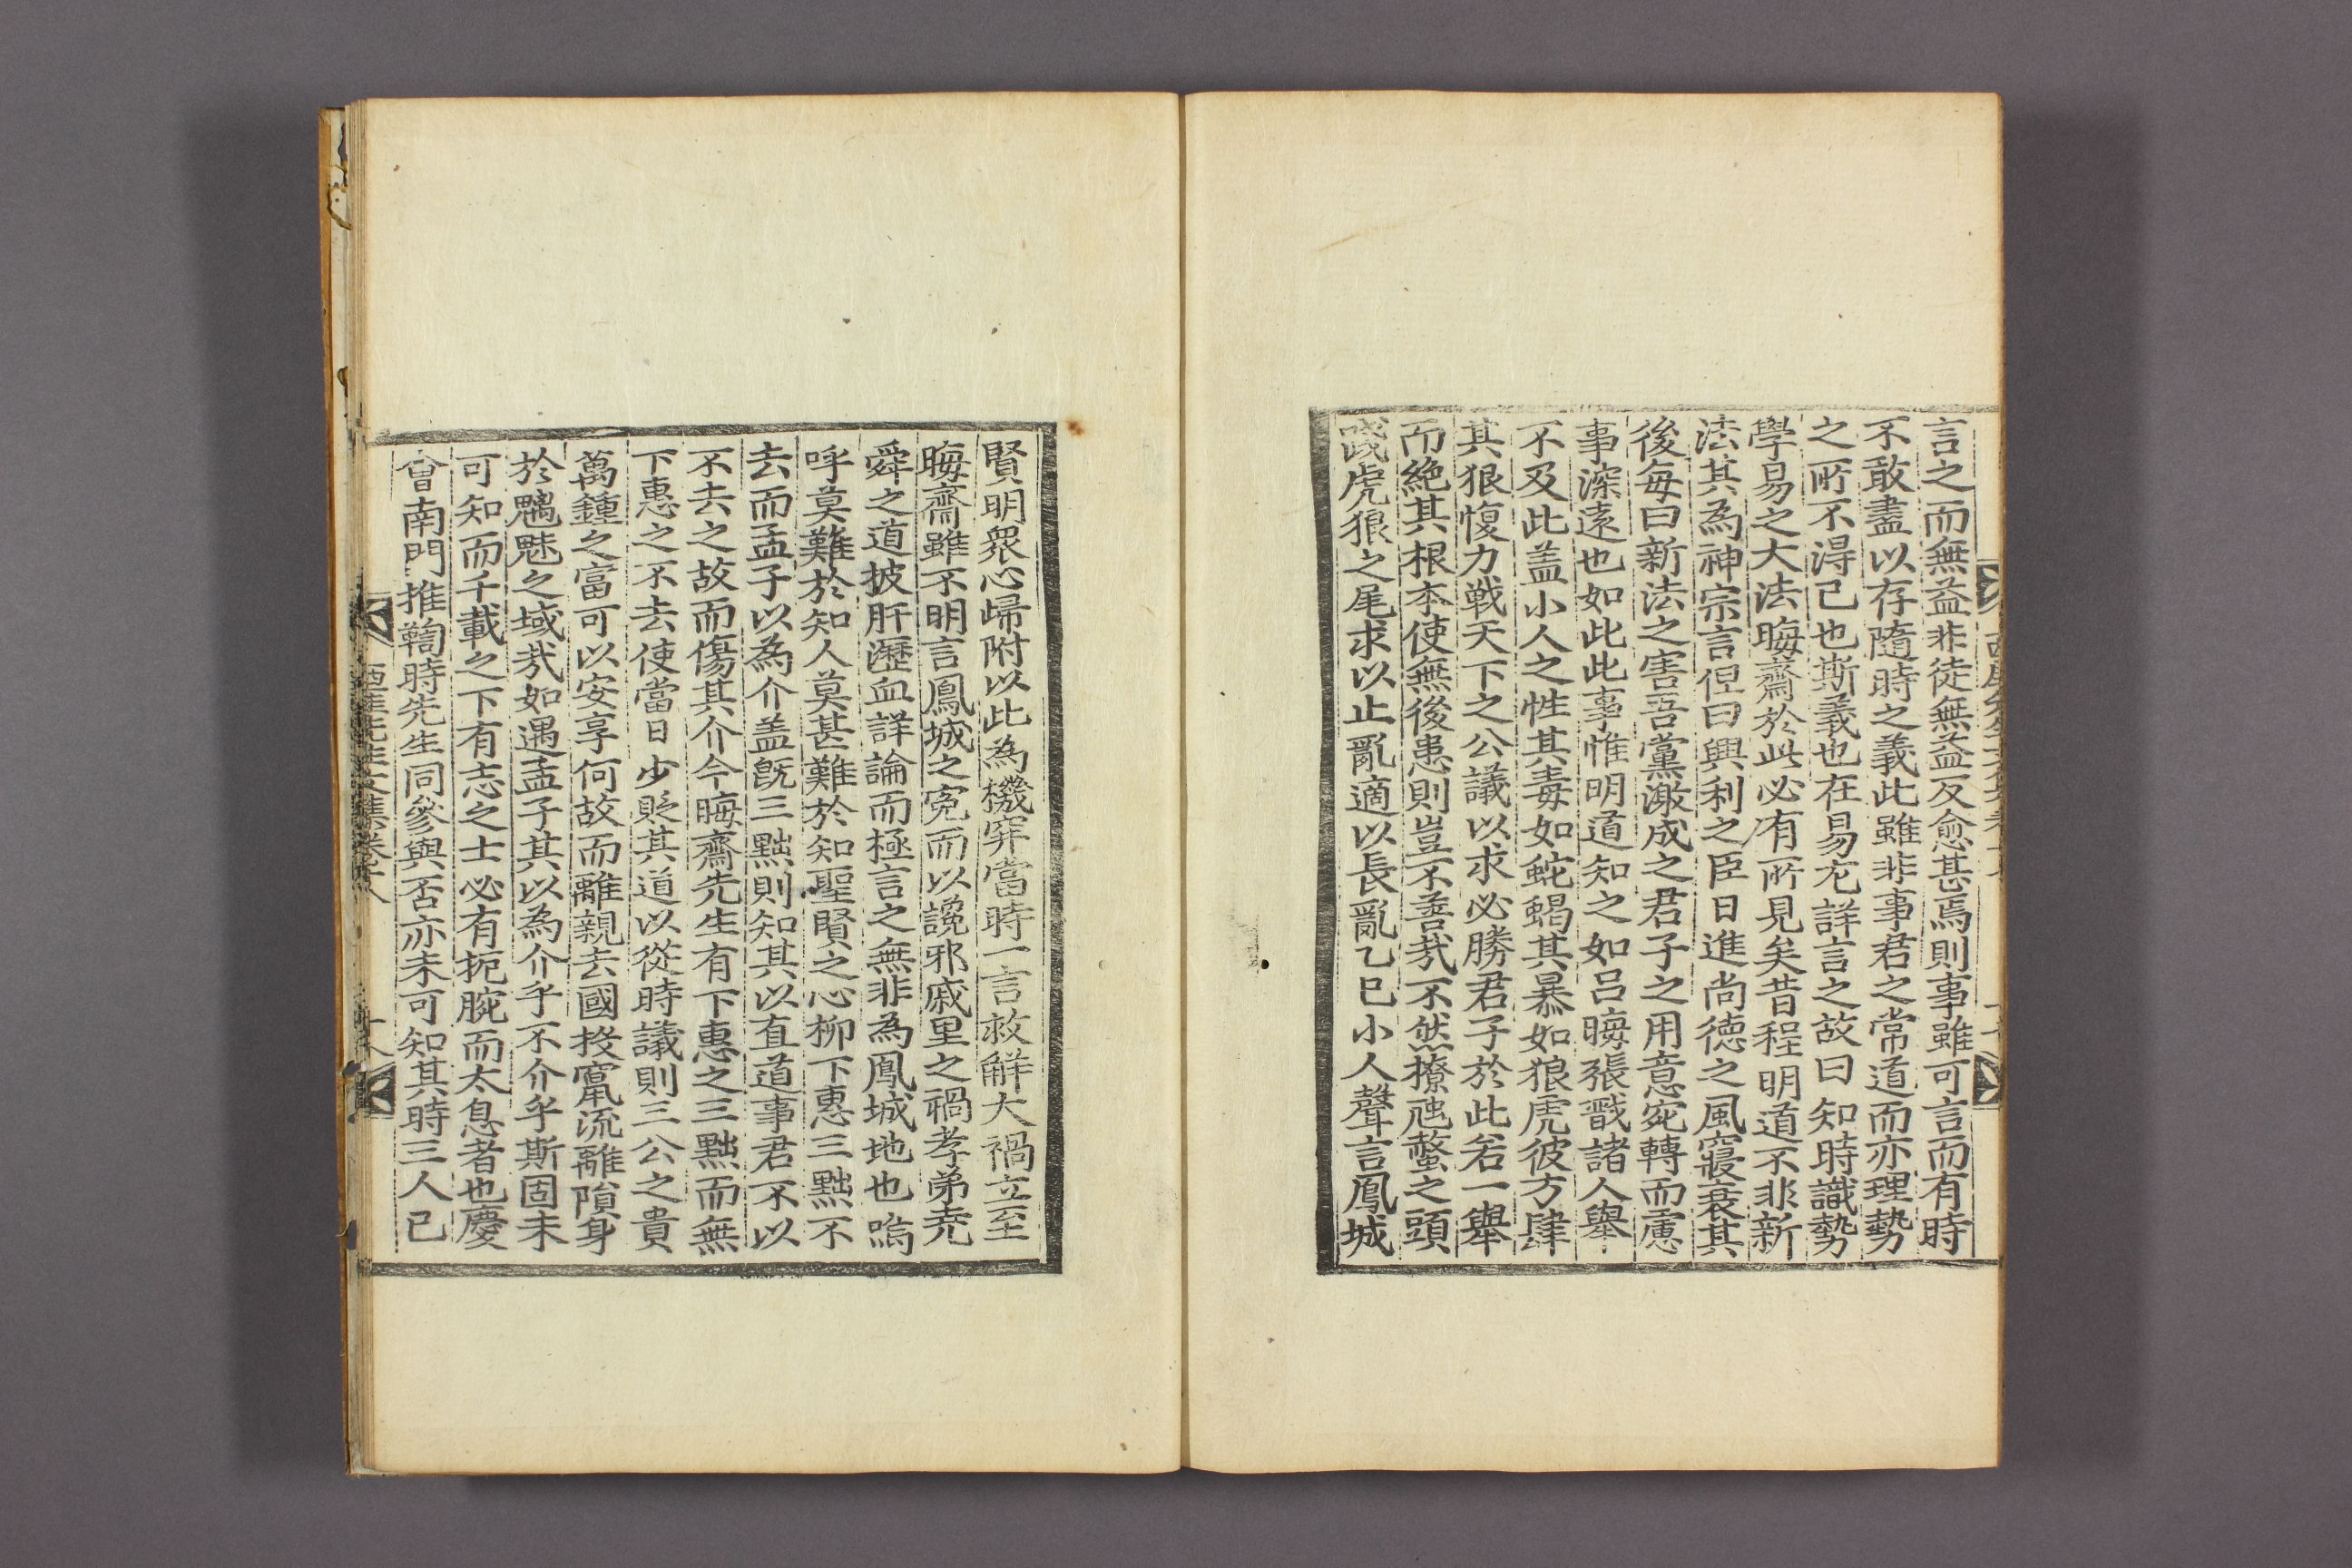 言之而無益非徒無益反愈甚焉則事雖可言而有時
不敢盡以存隨時之義此雖非事君之常道而亦理勢
之所不得已也斯義也在易尤詳言之故曰知時識勢
學易之大法晦齋於此必有所見矣昔程明道不非新
法其為神宗言但曰興利之臣日進尚德之風寢衰其
後每曰新法之害吾黨激成之君子之用意宛轉而慮
事深遠也如此此事惟明道知之如呂晦張戩諸人舉
不及此盖小人之性其毒如蛇蝎其暴如狼虎彼方肆
其狠愎力戰天下之公議以求必勝君子於此若一舉
而絶其根本使無後患則豈不善哉不然撩虺螫之頭
踐虎狼之尾求以止亂適以長亂乙巳小人聲言鳳城
賢明衆心歸附以此為機穽當時一言救解大禍立至
晦齋雖不明言鳳城之寃而以讒邪戚里之禍孝弟堯
舜之道披肝瀝血詳論而極言之無非為鳳城地也嗚
呼莫難於知人莫甚難於知聖賢之心柳下惠三黜不
去而孟子以為介盖旣三黜則知其以直道事君不以
不去之故而傷其介今晦齋先生有下惠之三黜而無
下惠之不去使當日少貶其道以從時議則三公之貴
萬鍾之富可以安享何故而離親去國投竄流離隕身
於魑魅之域哉如遇孟子其以為介乎不介乎斯固未
可知而千載之下有志之士必有扼腕而太息者也慶
會南門推鞫時先生同參與否亦未可知其時三人已
西厓先生文集卷之十八
十八